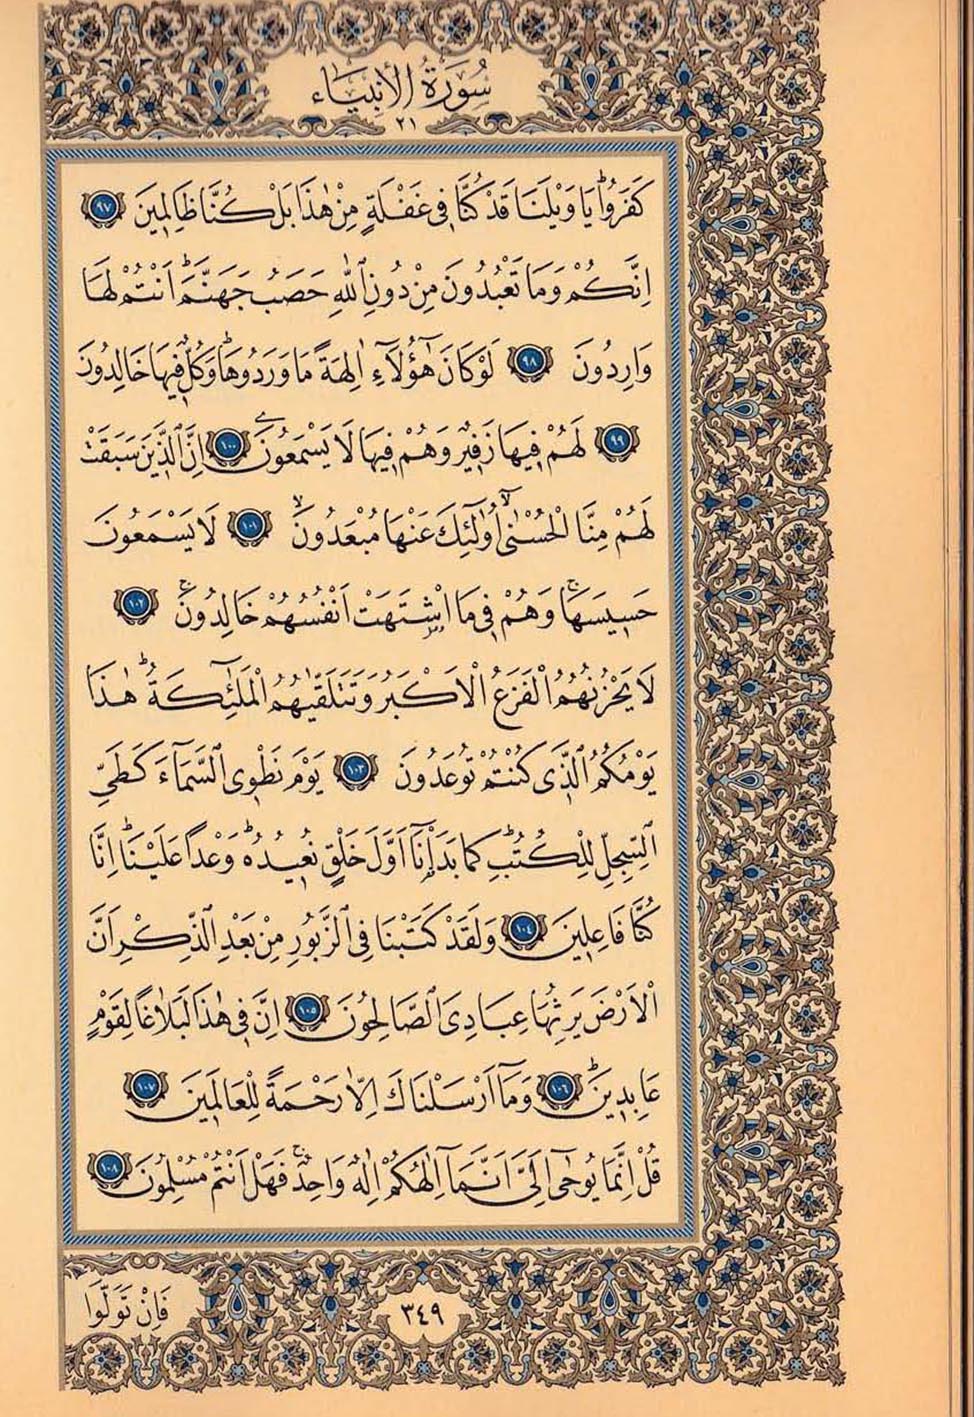 سُورَةُ الْاَنْبِيَاءِ
٢١
كَفَرُواۜ يَا وَيْلَنَا قَدْ كُنَّا فٖي غَفْلَةٍ مِنْ هٰذَا بَلْ كُنَّا ظَالِمٖينَ ٩٧
اِنَّكُمْ وَمَا تَعْبُدُونَ مِنْ دُونِ اللّٰهِ حَصَبُ جَهَنَّمَۜ اَنْتُمْ لَهَا
وَارِدُونَ ٩٨ لَوْ كَانَ هٰٓؤُ۬لَٓاءِ اٰلِهَةً مَا وَرَدُوهَاۜ وَكُلٌّ فٖيهَا خَالِدُونَ
٩٩ لَهُمْ فٖيهَا زَفٖيرٌ وَهُمْ فٖيهَا لَا يَسْمَعُونَ ١٠٠ اِنَّ الَّذٖينَ سَبَقَتْ
لَهُمْ مِنَّا الْحُسْنٰىۙ اُو۬لٰٓئِكَ عَنْهَا مُبْعَدُونَۙ ١٠١ لَا يَسْمَعُونَ
حَسٖيسَهَاۚ وَهُمْ فٖي مَا اشْتَهَتْ اَنْفُسُهُمْ خَالِدُونَۚ ١٠٢
لَا يَحْزُنُهُمُ الْفَزَعُ الْاَكْبَرُ وَتَتَلَقّٰيهُمُ الْمَلٰٓئِكَةُۜ هٰذَا
يَوْمُكُمُ الَّذٖي كُنْتُمْ تُوعَدُونَ ١٠٣ يَوْمَ نَطْوِي السَّمَٓاءَ كَطَيِّ
السِّجِلِّ لِلْكُتُبِۜ كَمَا بَدَأْنَٓا اَوَّلَ خَلْقٍ نُعٖيدُهُۜ وَعْداً عَلَيْنَاۜ اِنَّا
كُنَّا فَاعِلٖينَ ١٠٤ وَلَقَدْ كَتَبْنَا فِي الزَّبُورِ مِنْ بَعْدِ الذِّكْرِ اَنَّ
الْاَرْضَ يَرِثُهَا عِبَادِيَ الصَّالِحُونَ ١٠٥ اِنَّ فٖي هٰذَا لَبَلَاغاً لِقَوْمٍ
عَابِدٖينَۜ ١٠٦ وَمَٓا اَرْسَلْنَاكَ اِلَّا رَحْمَةً لِلْعَالَمٖينَ ١٠٧
قُلْ اِنَّمَا يُوحٰٓى اِلَيَّ اَنَّمَٓا اِلٰهُكُمْ اِلٰهٌ وَاحِدٌۚ فَهَلْ اَنْتُمْ مُسْلِمُونَ ١٠٨
فَاِنْ تَوَلَّوْا
٣٤٩